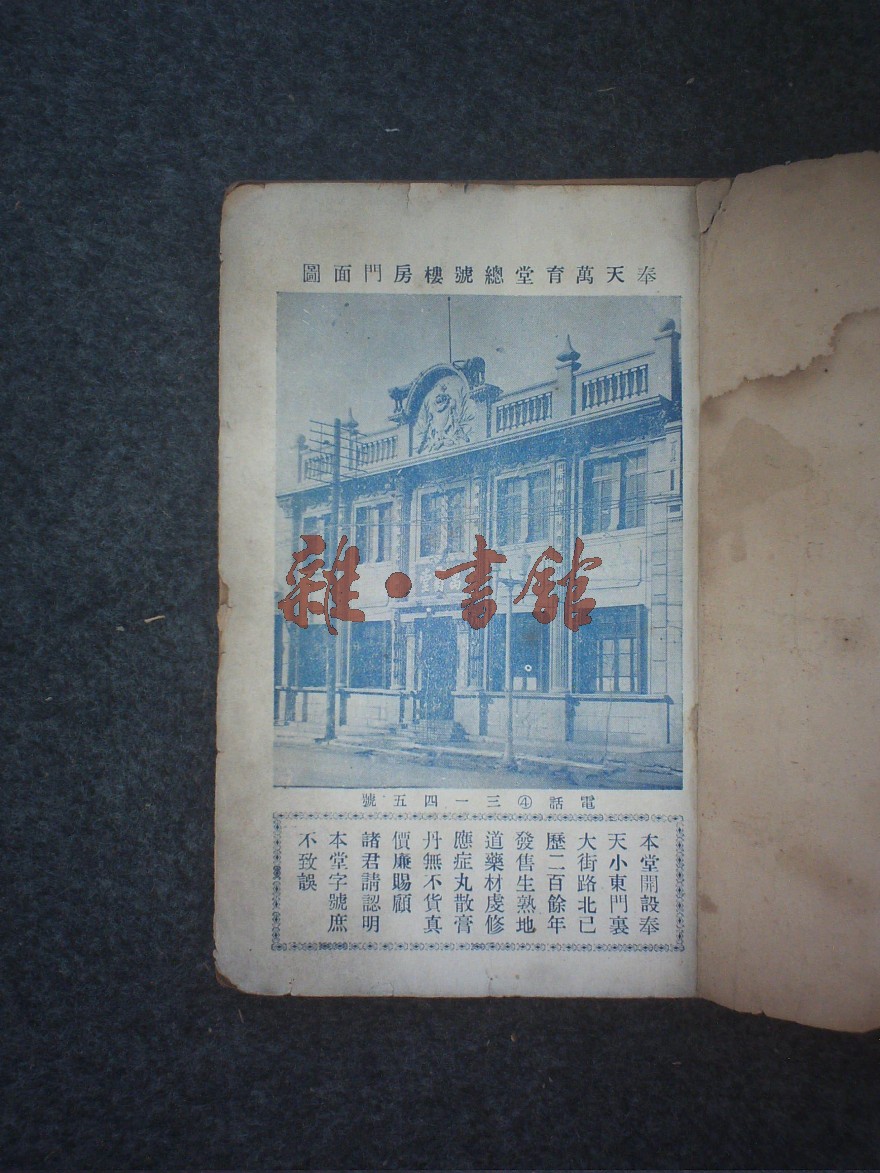 奉天萬育堂總號樓房門面圖
雜·書館
電話④三一四五號
本堂開設奉
天小東門裏
大街路北已
歷二百餘年
發售生熟地
道藥材虔修
應症丸散膏
丹無不貨真
價廉賜顧
諸君請認明
本堂字號庶
不致誤